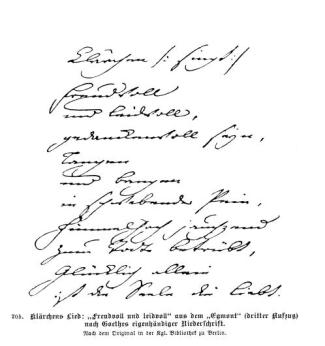 Clärchen /: singt :/
Freudvoll
und leidvoll,
gedankenvoll seyn,
Langen
und bangen
in schwebender Pein,
Himmelhoch jauchzend
zum Tode betrübt,
Glücklich allein
ist die Seele die liebt.
705. Klärchens Lied: „Freudvoll und leidvoll“ aus dem „Egmont“ (dritter Aufzug)
nach Goethes eigenhändiger Niederschrift.
Nach dem Original in der Kgl. Bibliothek zu Berlin.